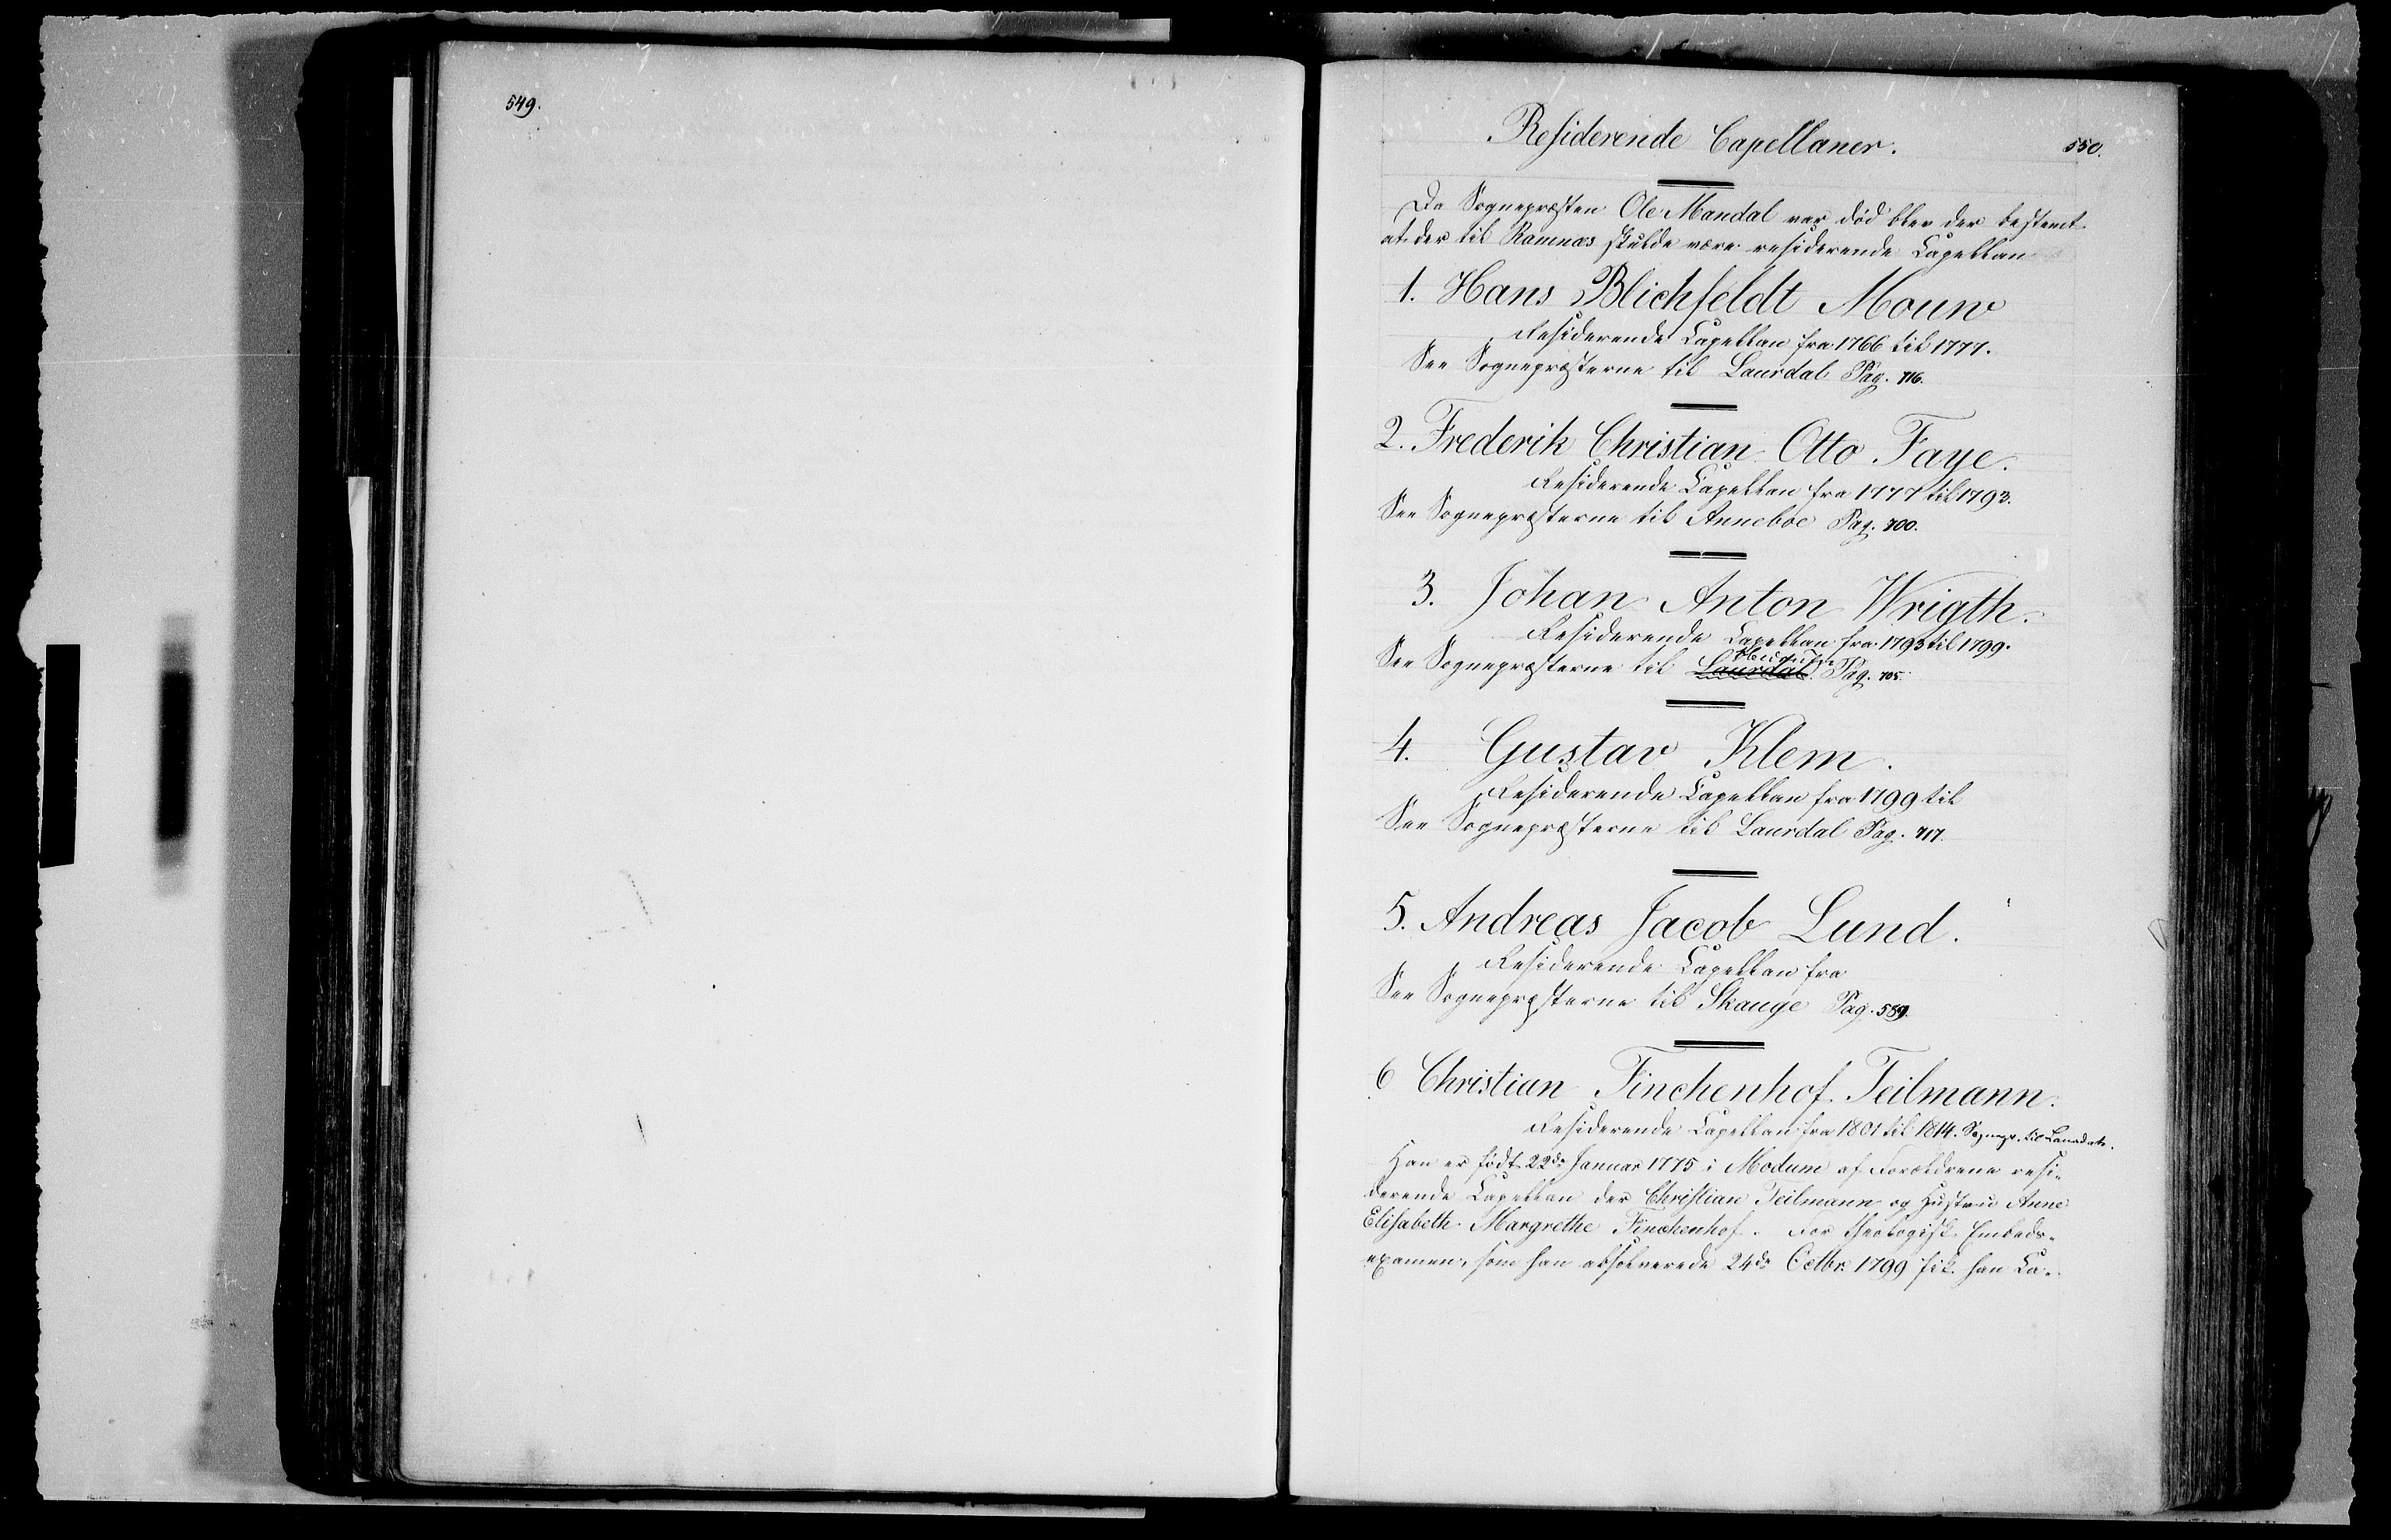 549.
Residerende Capellaner.
550.
Da Sognepræsten Ole Mandal var død blev der bestemt
at der til Ramnæs skulde være residerende Capellan
1. Hans Blichfeldt Mouw
Residerende Capellan fra 1766 til 1777.
See Sognepræsterne til Laurdal Pag. 716.
2. Frederik Christian Otto Faye.
Residerende Capellan fra 1777 til 1793.
See Sognepræsterne til Anneboe Pag. 700.
3. Johan Anton Wrigth.
Residerende Capellan fra 1793 til 1799.
See Sognepræsterne til Laurdal Pag. 705.
4. Gustav Klem.
Residerende Capellan fra 1799 til
See Sognepræsterne til Laurdal Pag. 717.
5. Andreas Jacob Lund.
Residerende Capellan fra
See Sognepræsterne til Skauge Pag. 589.
6 Christian Finchenhof Teilmann.
Residerende Capellan fra 1801 til 1814. Sognepr. til
Han er født 22de Januar 1775 i Modum af Forældrene resi-
derende Capellan der Christian Teilmann og Hustru Anne
Elisabeth Margrethe Finchenhof. For theologisk Embeds-
examen, som han absolverede 24de Octbr. 1799 fik han La-